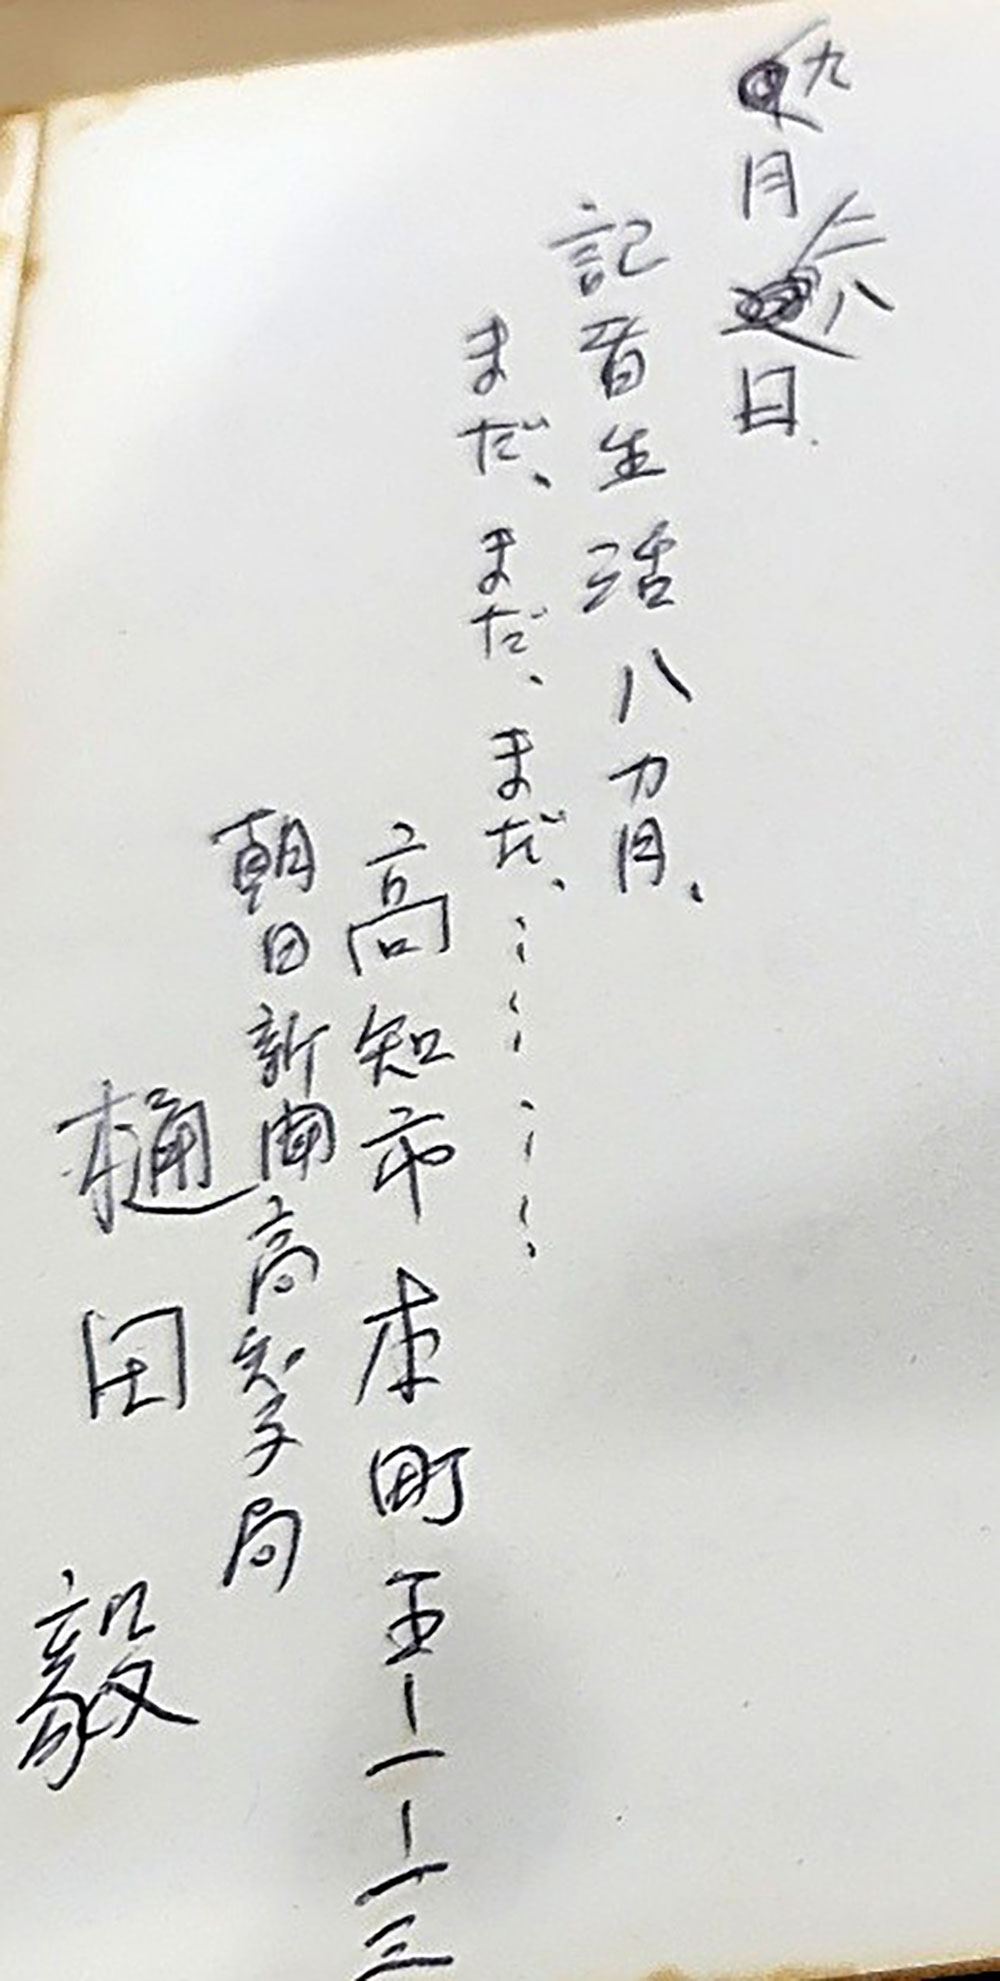 九月二八日
記者生活八カ月、
まだ、まだ、まだ、…………
高知市本町五ー一ー一三
朝日新聞高知支局
樋田毅